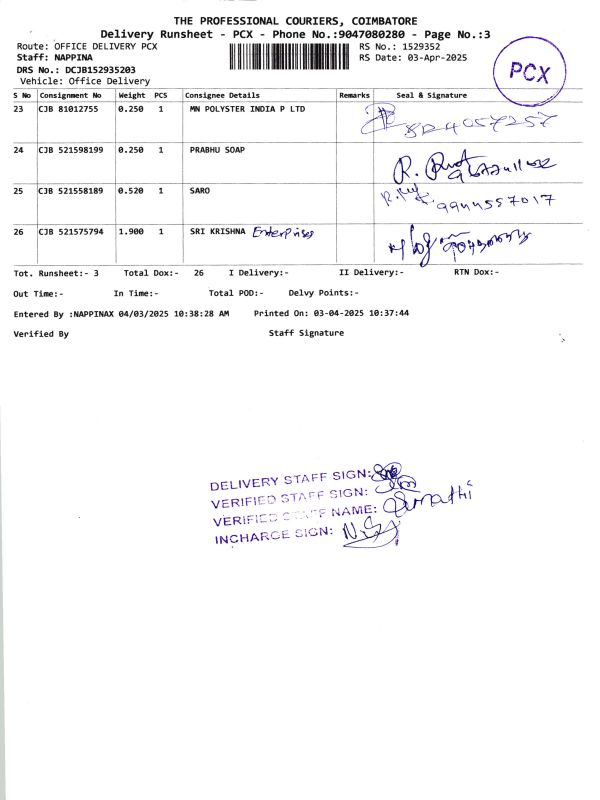 THE PROFESSIONAL COURIERS, COIMBATORE
Delivery Runsheet - PCX - Phone No.:9047080280 - Page No.:3
Route: OFFICE DELIVERY PCX
RS No.: 1529352
Staff: NAPPINA
RS Date: 03-Apr-2025
DRS No.: DCJB152935203
Vehicle: Office Delivery
PCX
S No Consignment No Weight PCS Consignee Details Remarks Seal & Signature
23 CJB 81012755 0.250 1 MN POLYSTER INDIA P LTD
24 CJB 521598199 0.250 1 PRABHU SOAP
25 CJB 521558189 0.520 1 SARO 9944557017
26 CJB 521575794 1.900 1 SRI KRISHNA Enterprises
Tot. Runsheet:- 3 Total Dox:- 26 I Delivery:- II Delivery:- RTN Dox:-
Out Time:- In Time:- Total POD:- Delvy Points:-
Entered By :NAPPINAX 04/03/2025 10:38:28 AM Printed On: 03-04-2025 10:37:44
Verified By Staff Signature
DELIVERY STAFF SIGN:
VERIFIED STAFF SIGN:
VERIFIED STAFF NAME:
INCHARGE SIGN: